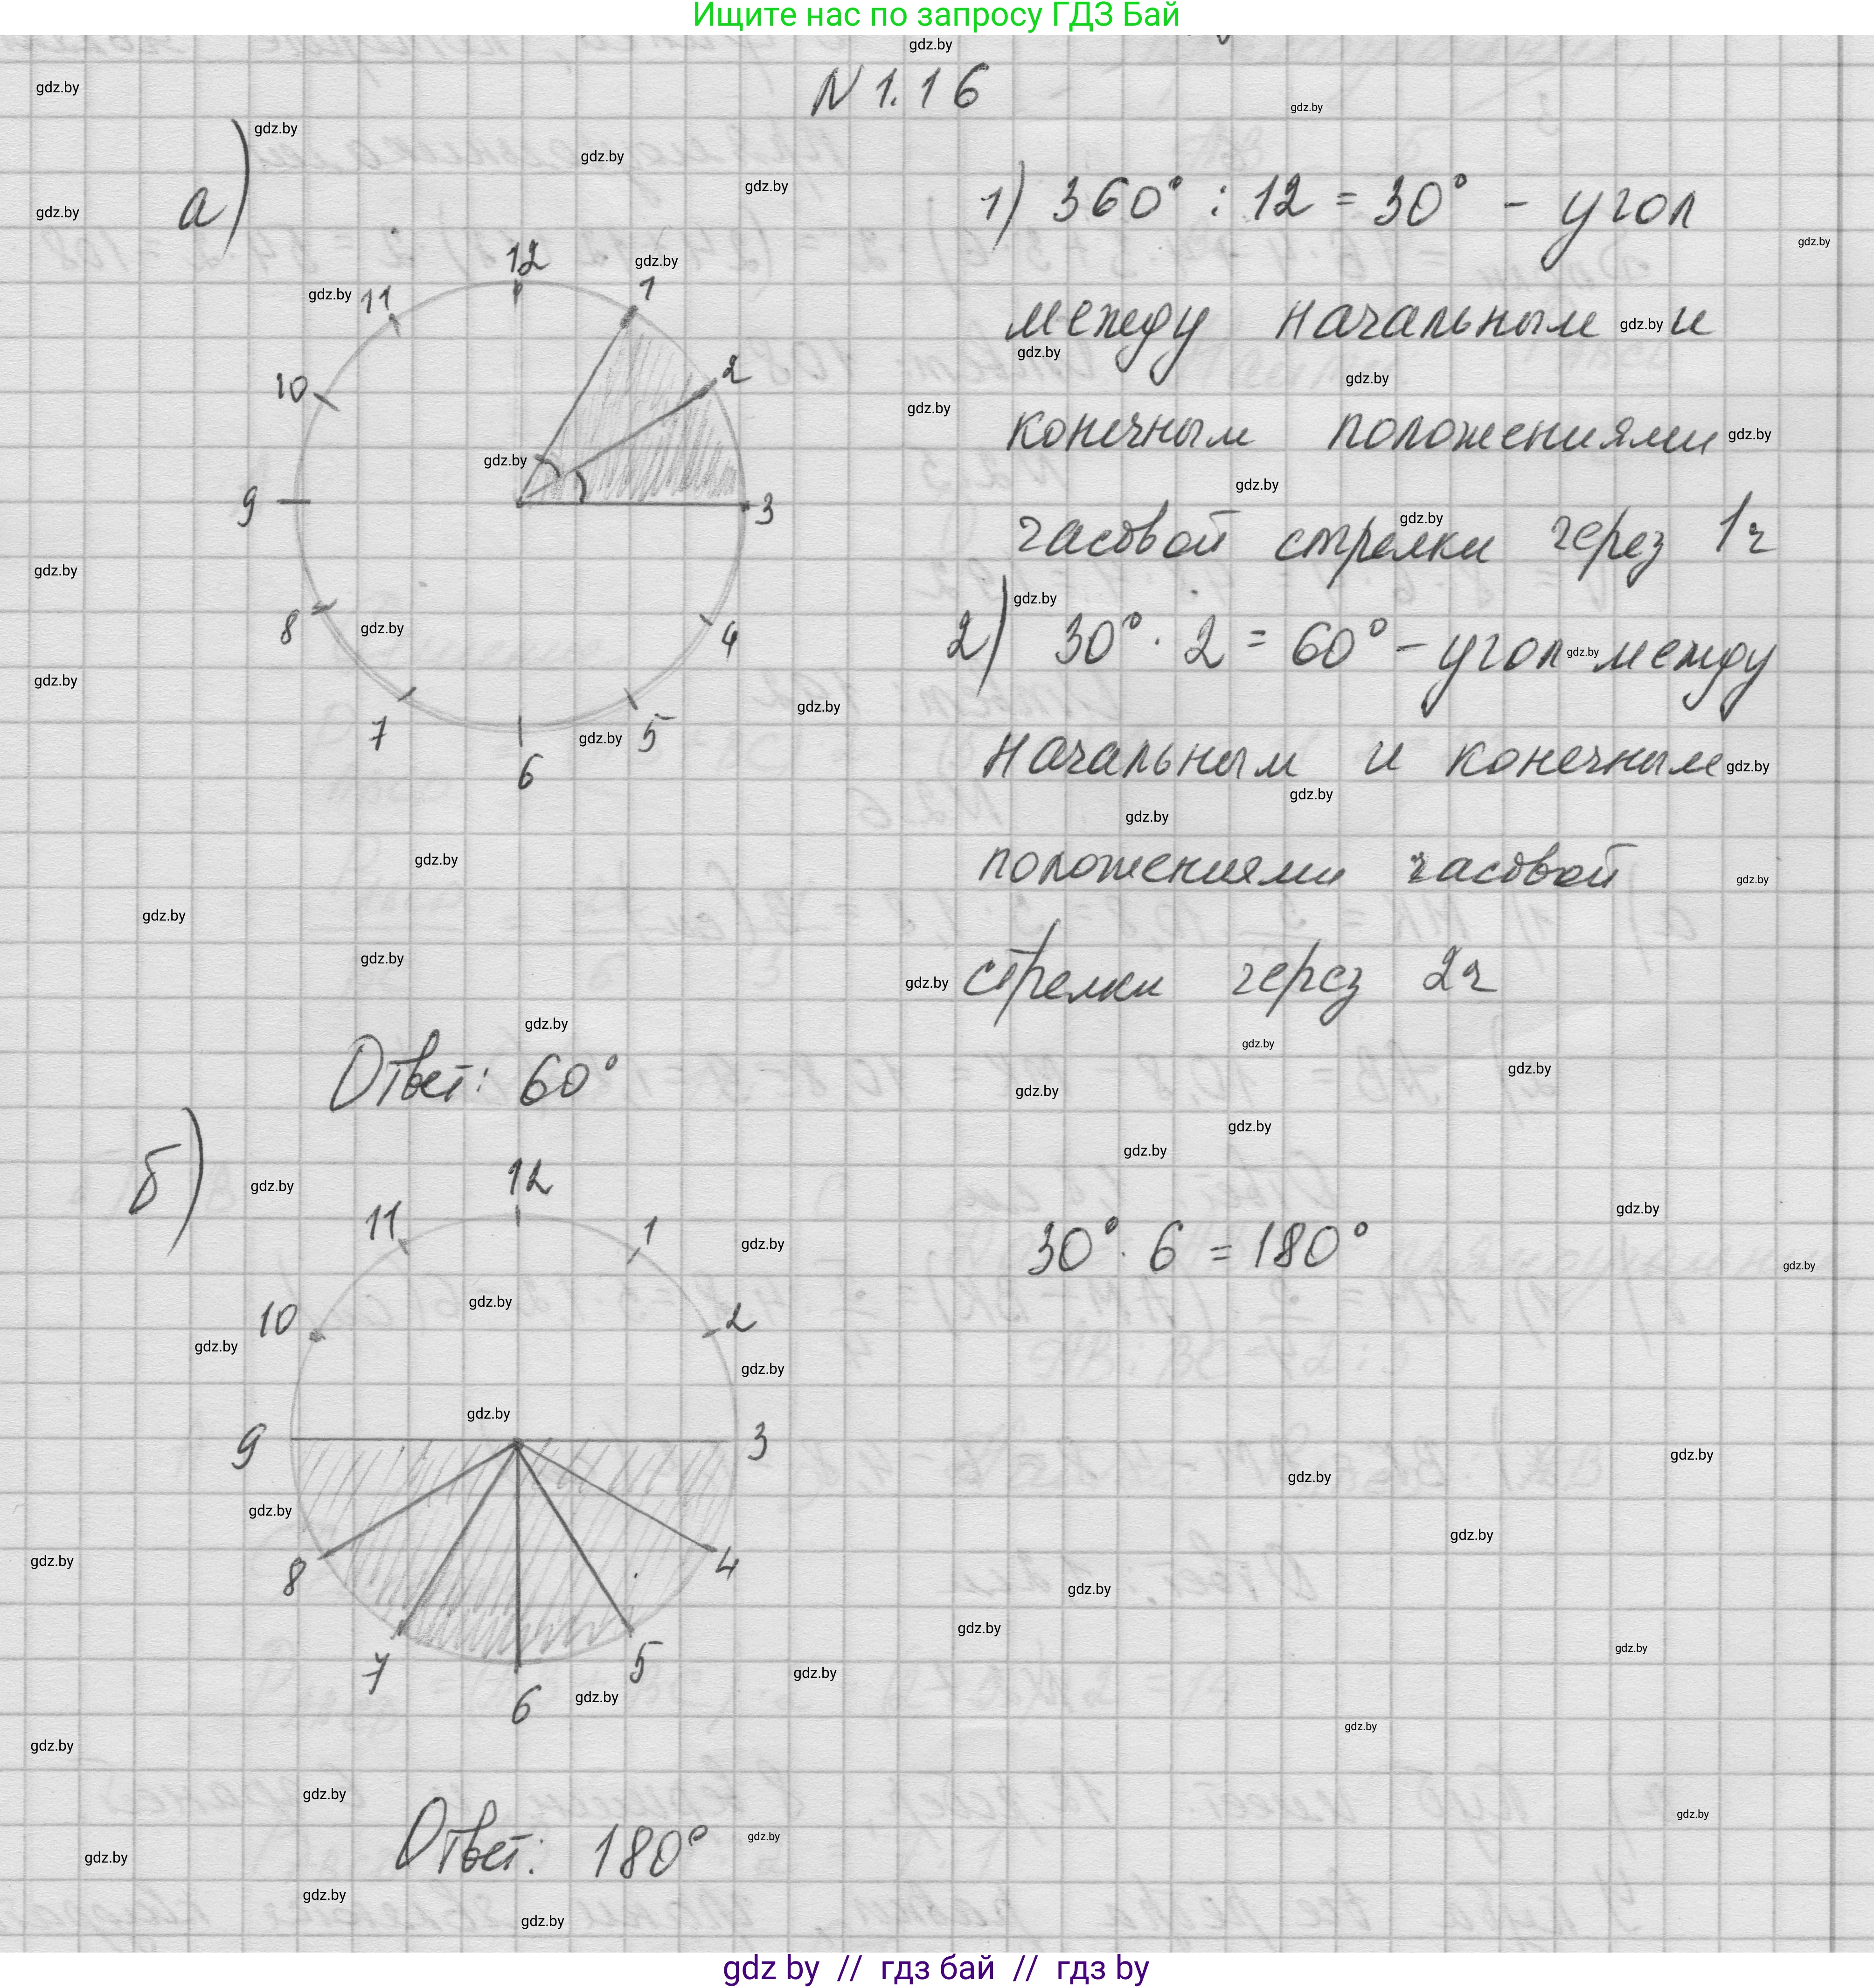 Ищите нас по запросу ГДЗ Бай
N 1.16
а)
12
1
2
3
4
5
6
7
8
9
10
11
1) 360° : 12 = 30° - угол
между начальным и
конечным положениями
часовой стрелки через 1ч
2) 30° · 2 = 60° - угол между
начальным и конечным
положениями часовой
стрелки через 2ч
Ответ: 60°
б)
12
1
2
3
4
5
6
7
8
9
10
11
30° · 6 = 180°
Ответ: 180°
gdz by // гдз бай // гдз by